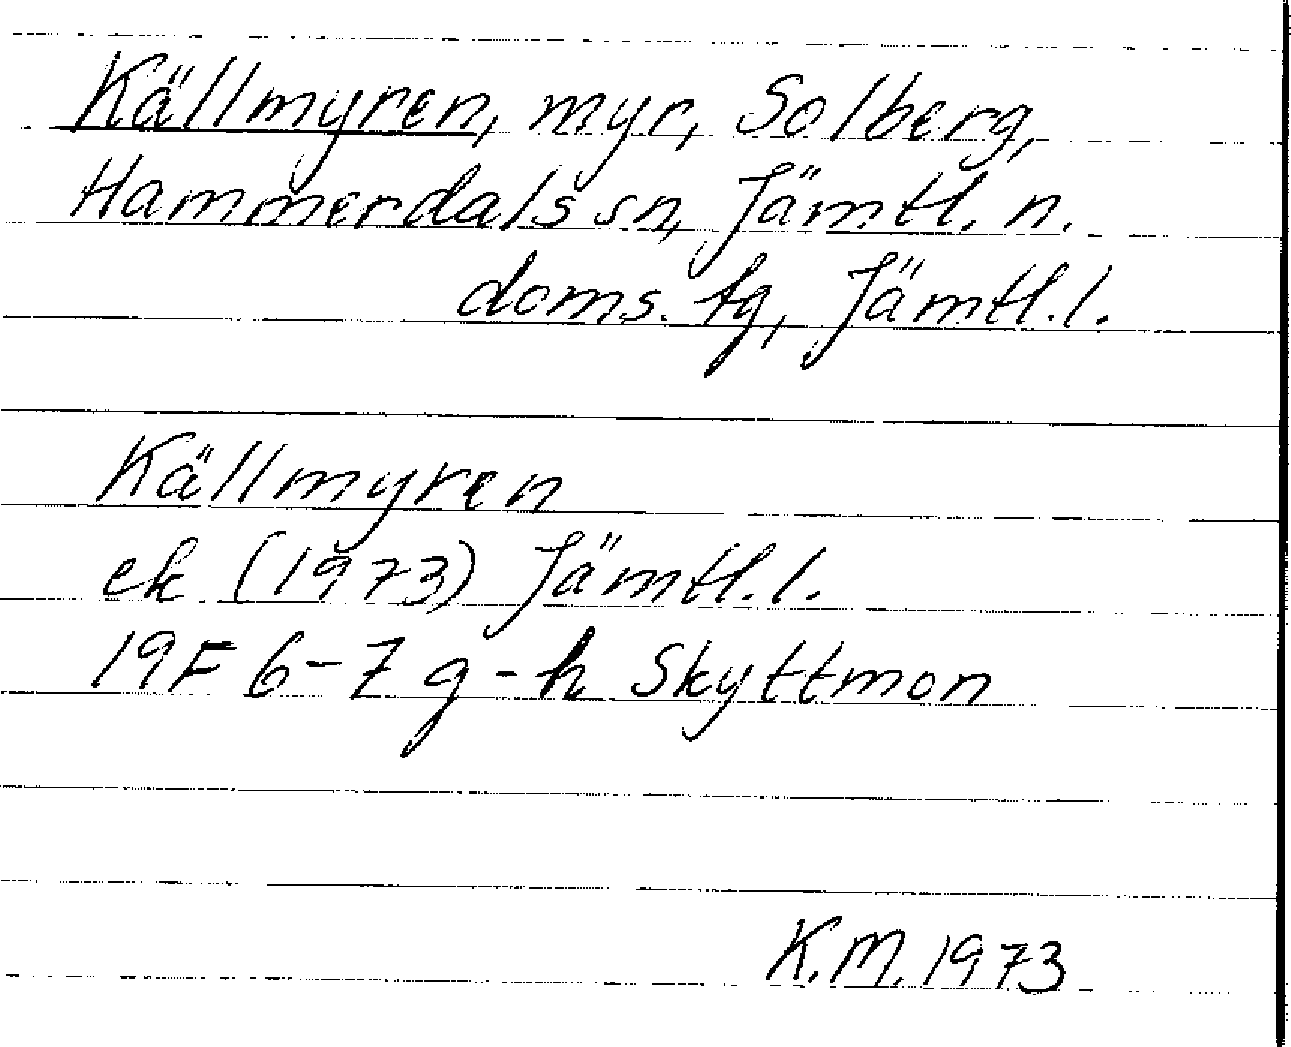 Källmyren, myr, Solberg,
Hammerdals sn, Jämtl. n.
doms. tg, Jämtl.l.
Källmyren
ek (1973) Jämtl.l.
19F 6-7 g-h Skyttmon
K.M. 1973